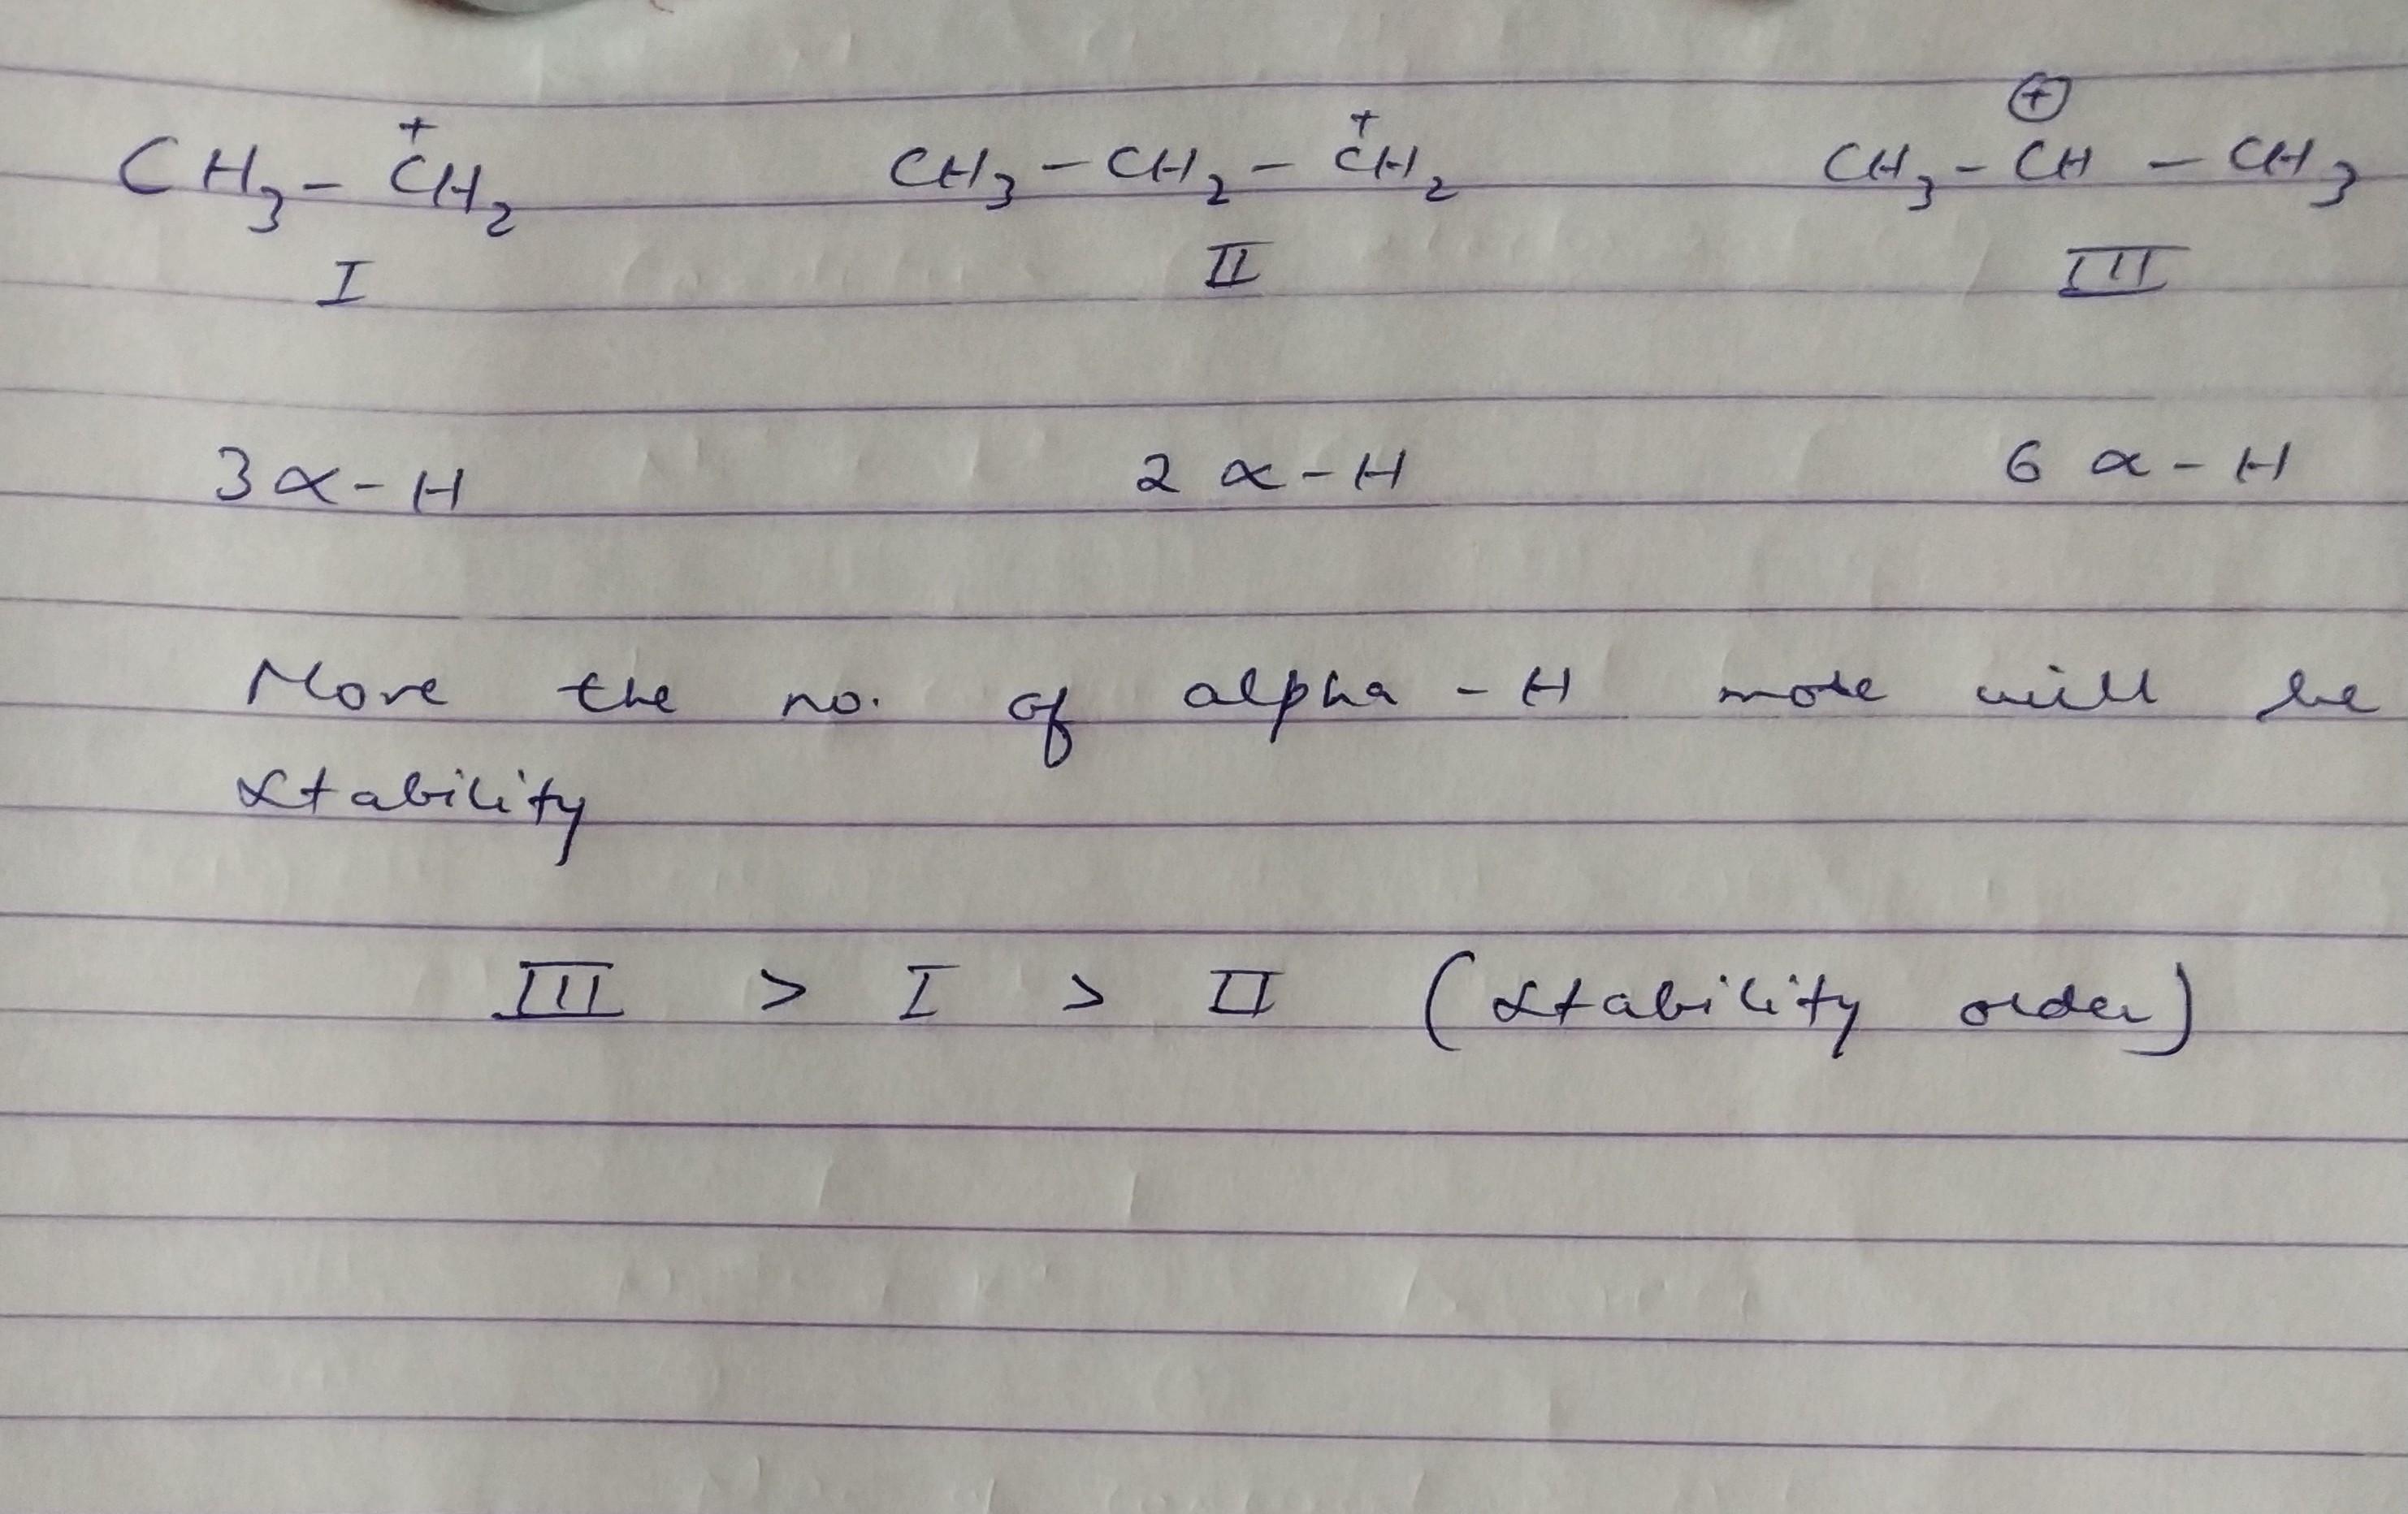 CH₃ - C⁺H₂ CH₃ - CH₂ - C⁺H₂ CH₃ - C⊕H - CH₃
I II III
3 α - H 2 α - H 6 α - H
More the no. of alpha - H more will be
stability
III > I > II (stability order)